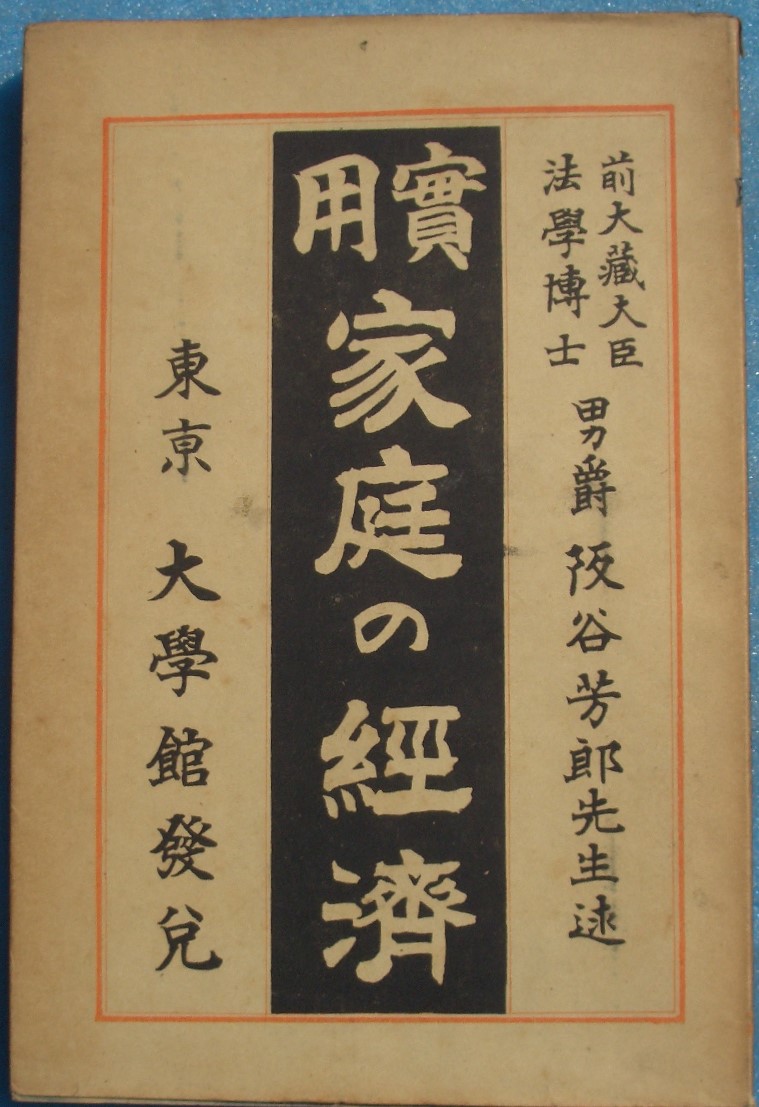 前大藏大臣
法學博士
男爵 阪谷芳郎先生述
實用
家庭の經濟
東京 大學館發兌